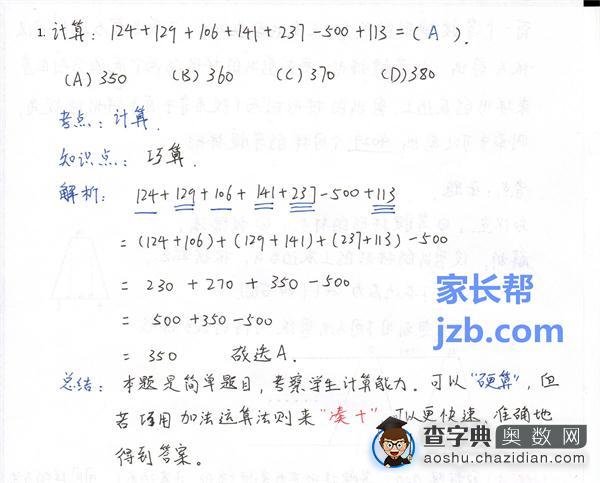 1. 计算: 124+129+106+141+237-500+113=( A ).
(A) 350 (B) 360 (C) 370 (D) 380
考点: 计算.
知识点: 巧算.
解析: 124+129+106+141+237-500+113
=(124+106)+(129+141)+(237+113)-500
= 230 + 270 + 350 - 500
= 500+350-500
= 350 故选A.
家长帮
jzb.com
总结: 本题是简单题目, 考察学生计算能力. 可以"硬算", 但
若巧用加法运算法则来"凑十"可以更快速、准确地
得到答案。
查字典奥数网
aoshu.chazidian.com